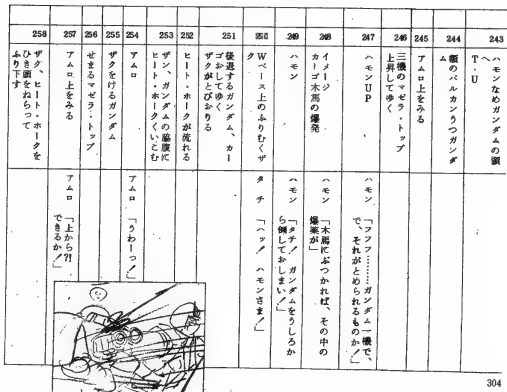 243
ハモンなめガンダムの頭へ
T・U
244
額のバルカンうつガンダ
ム
245
アムロ上をみる
246
三機のマゼラ・トップ
上昇してゆく
247
ハモンUP
ハモン「フフフ………ガンダム一機で、
で、それがとめられるものか!」
248
イメージ
カーゴ木馬の爆発
ハモン「木馬にぶつかれば、その中の
爆薬が」
249
ハモン
ハモン「タチ!ガンダムをうしろか
ら倒しておしまい!」
250
Wベース上のふりむくザ
ク
タチ「ハッ!ハモンさま!」
251
後退するガンダム、カー
ゴおしてゆく
ザクがとびおりる
252
ヒート・ホークが流れる
253
ザン、ガンダムの脇腹に
ヒート・ホークくいこむ
254
アムロ
アムロ「うわーっ!」
255
ザクをけるガンダム
256
せまるマゼラ・トップ
257
アムロ上をみる
アムロ「上から?!
できるか!」
258
ザク、ヒート・ホークを
ひき頭をねらって
ふり下す
304